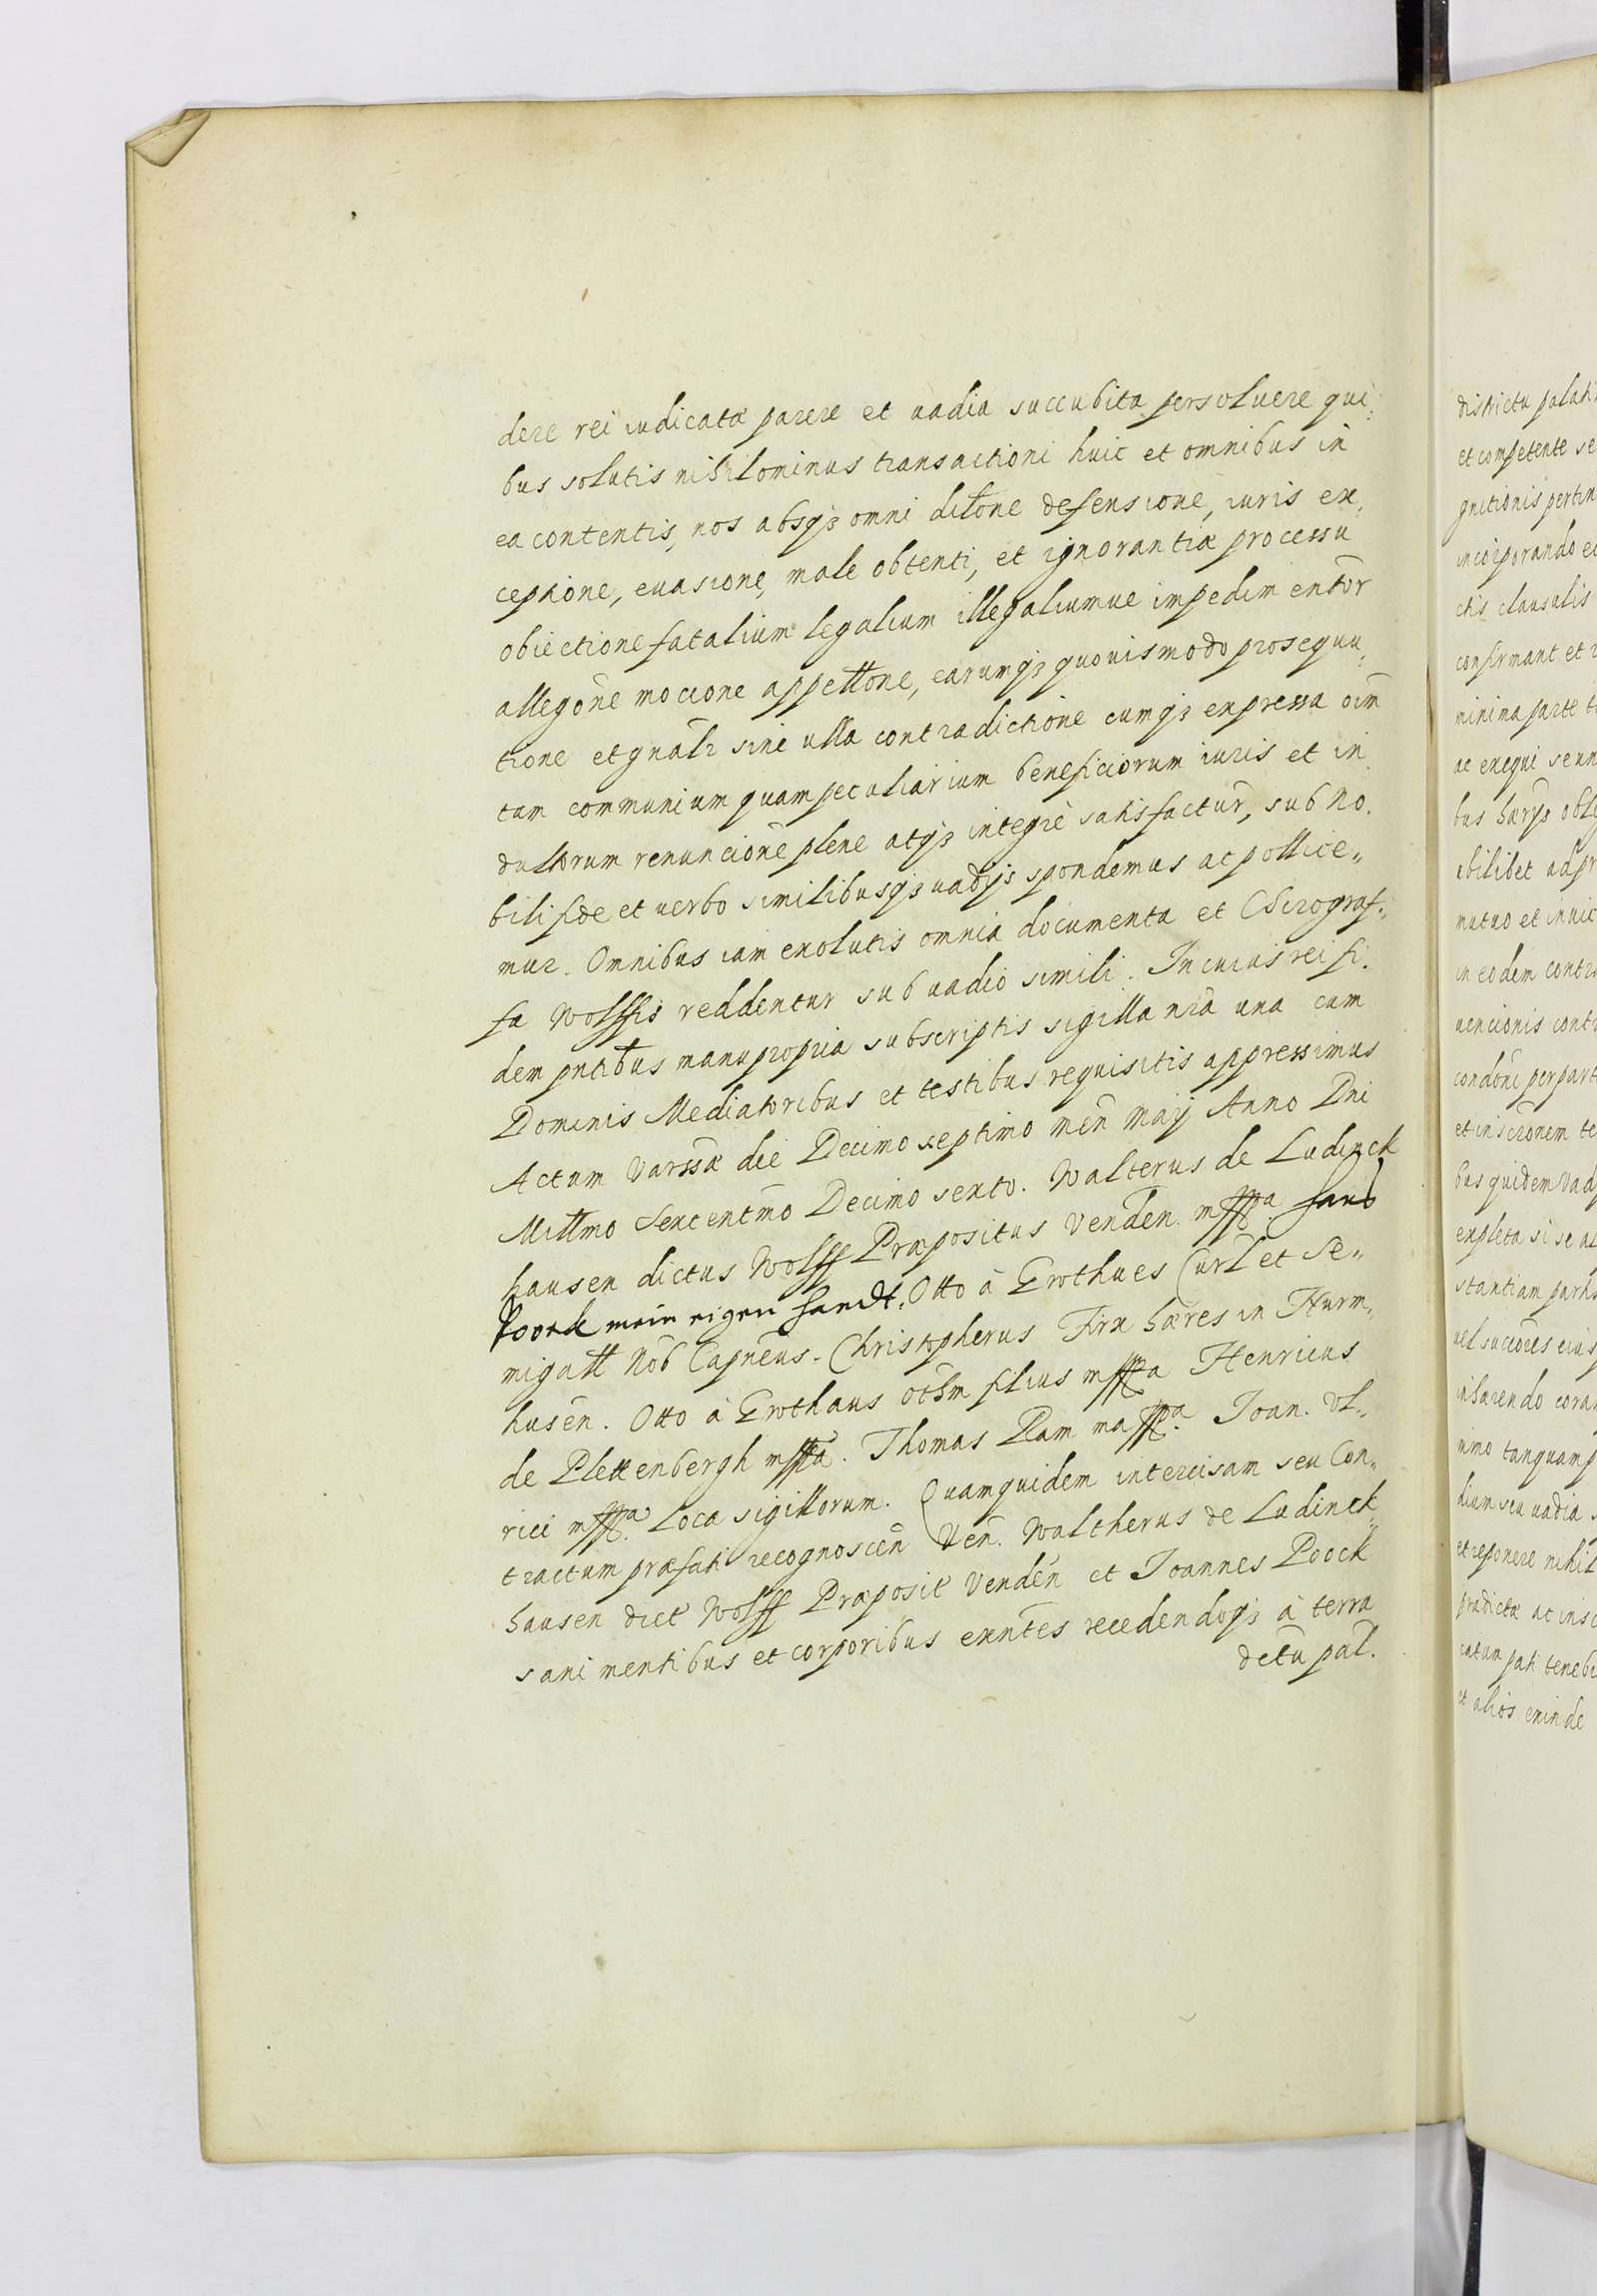 dere rei iudicatæ parere et vadia succubita persoluere qui„
bus solutis nihilominus transactioni huic et omnibus in
ea contentis, nos absqȝ omni dil̃one defensione, iuris ex„
ceptione, euasione, male obtenti, et ignorantiæ processu
obiectione fatalium legalium illegaliumue impedimentor̃
allegõne mocione appell̃one, earumqȝ quouismodo prosequu„
tione et gnãlr sine ulla contradictione cumqȝ expressa oĩm
tam communium quam peculiarium beneficiorum iuris et in„
dultorum renuncciõne plene atqȝ integrè satisfactur̃, sub no„
bili fide et uerbo similibusqȝ uadijs spondemus ac pollice„
mur. Omnibus iam exolutis omnia documenta et Chirogra„
fa Wolffis reddentur sub uadio simili. In cuius rei fi„
dem pntibus manu propria subscriptis sigilla nrã una cum
Dominis Mediatoribus et testibus requisitis appressimus
Actum Varssæ die Decimo septimo men̄ Maij Anno Dni
Millmo Sexcentm̃o Decimo sexto. Walterus de Ludinck
hausen dictus Wolff Præpositus Venden̄. mppa Hans
Poock mein eigen handt. Otto à Grothues Curl̃ et Se„
migall Nob̃ Capneus. Christopherus Firx hæres in Nurm„
husen̄. Otto à Grothaus oth̃m filius mppa Henricus
de Plettenbergh mppa. Thomas Ram mappa. Joan. Ul„
rici mppa. Loca sigillorum. Quamquidem intercisam seu Con„
tractum præfati recognoscen̄ Ven̄. Waltherus de Ludinck„
hausen dict̃ Wolff Præposit̃ Venden̄ et Joannes Poock
sani mentibus et corporibus exñtes recedendoqȝ à terra
dc̃tu pal̃.

districtu palati
et competente se
gnitionis pertin
incorporando e
ctis clausulis
confirmant et r
minima parte t
ac exequi seun
bus hærqȝ obl
ibilibet ad pr
mutuo et inuic
in eodem contra
uencionis contr
condõni per part
et inscr̃onem te
bus quidem vad
expleta si se al
stantiam partis
uel succr̃es eius
inhærendo cora
nimo tanquam p
dium seu uadia s
et reponere nihil
prædictæ ac insc
catum pati tenebi
et alios exinde